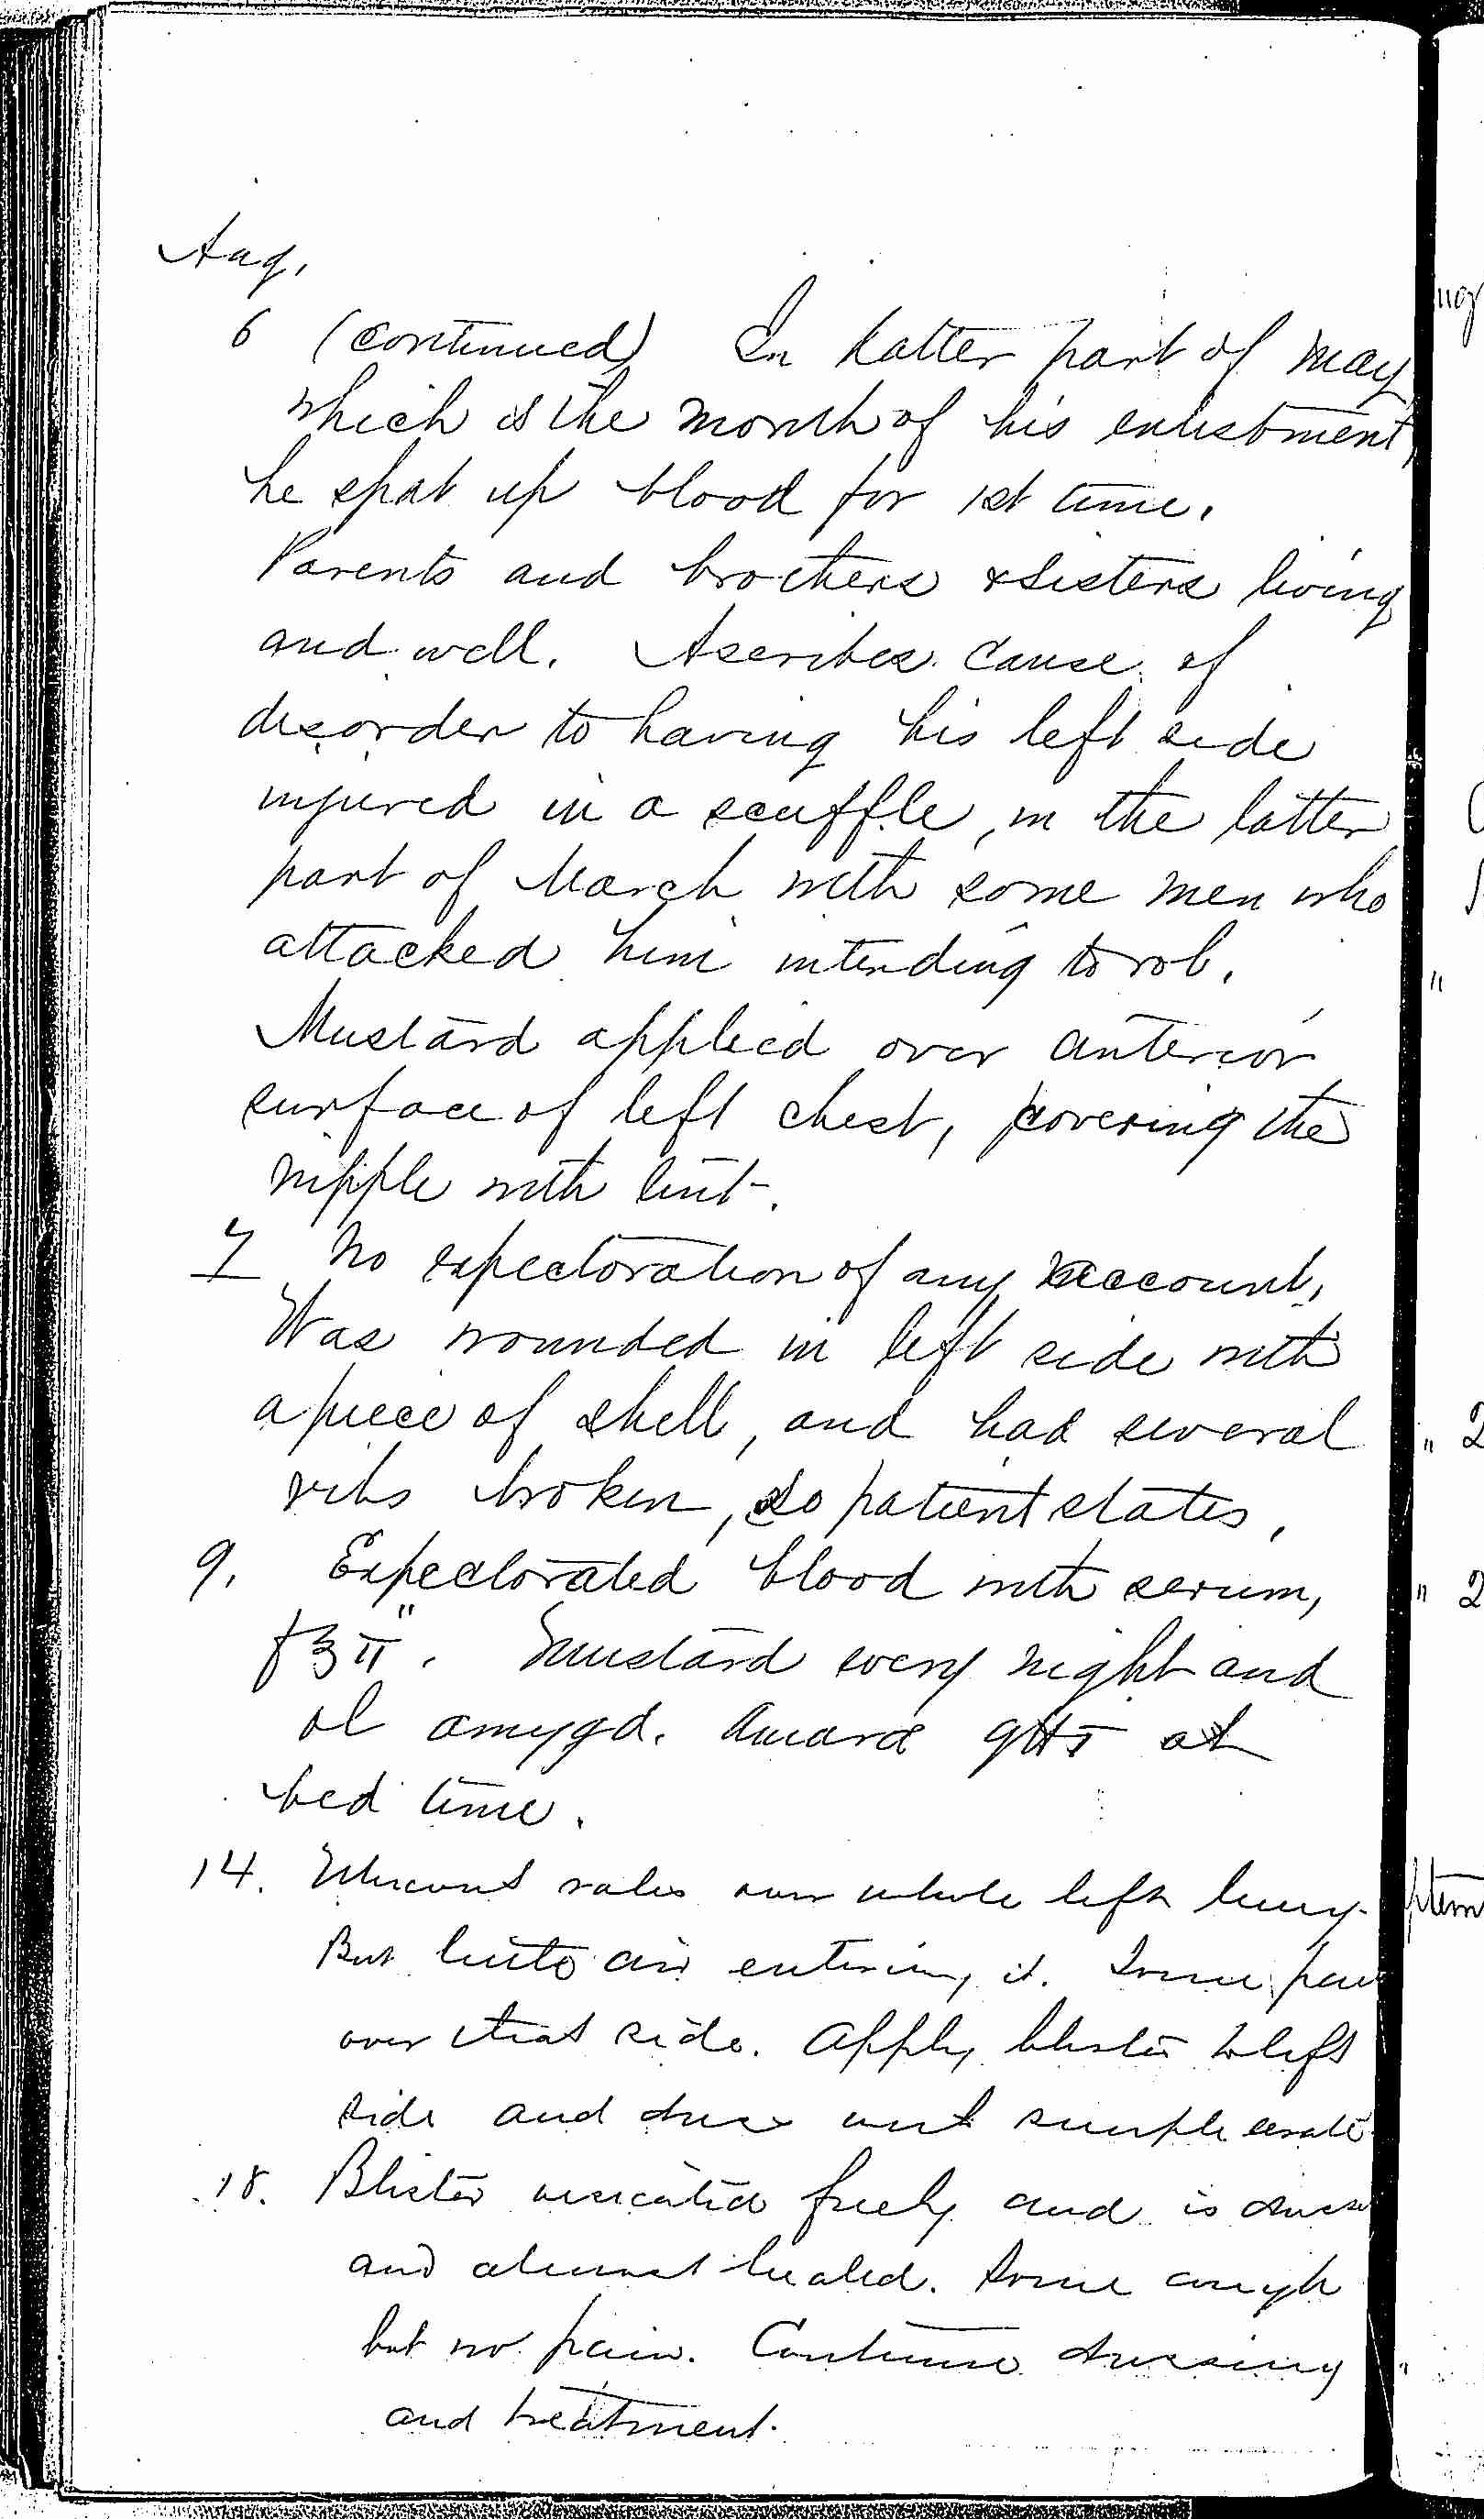 Aug.
6 (continued) In latter part of May,
which is the month of his enlistment,
he spat up blood for 1st time.
Parents and brothers & sisters living
and well. Ascribes cause of
disorder to having his left side
injured in a scuffle, in the latter
part of March with some men who
attacked him intending to rob.
Mustard applied over anterior
surface of left chest, covering the
nipple with lint.
7 No expectoration of any account.
Was wounded in left side with
a piece of shell, and had several
ribs broken, so patient states.
9. Expectorated blood with serum,
f℥ii". Mustard every night and
ol amygd. amarae gtt i at
bed time.
14. Mucous rales over whole left lung.
But little air entering it. Some pain
over that side. Apply blister to left
side and dress with simple cerate.
18. Blister vesicated freely and is
and almost healed. Some cough
but no pain. Continue dressing
and treatment.